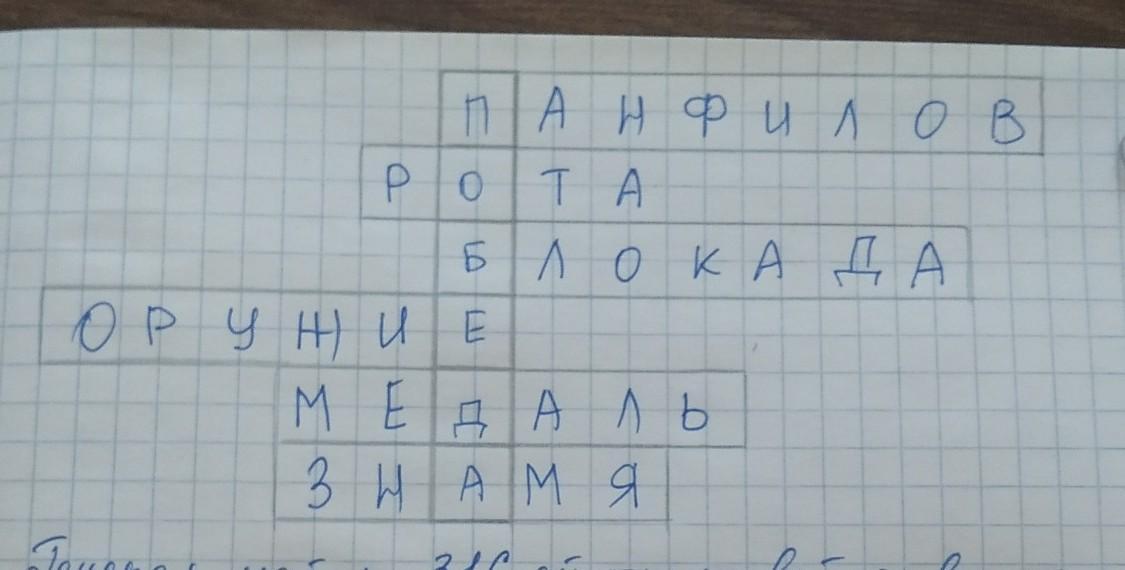 ПАНФИЛОВ
РОТА
БЛОКАДА
ОРУЖИЕ
МЕДАЛЬ
ЗНАМЯ